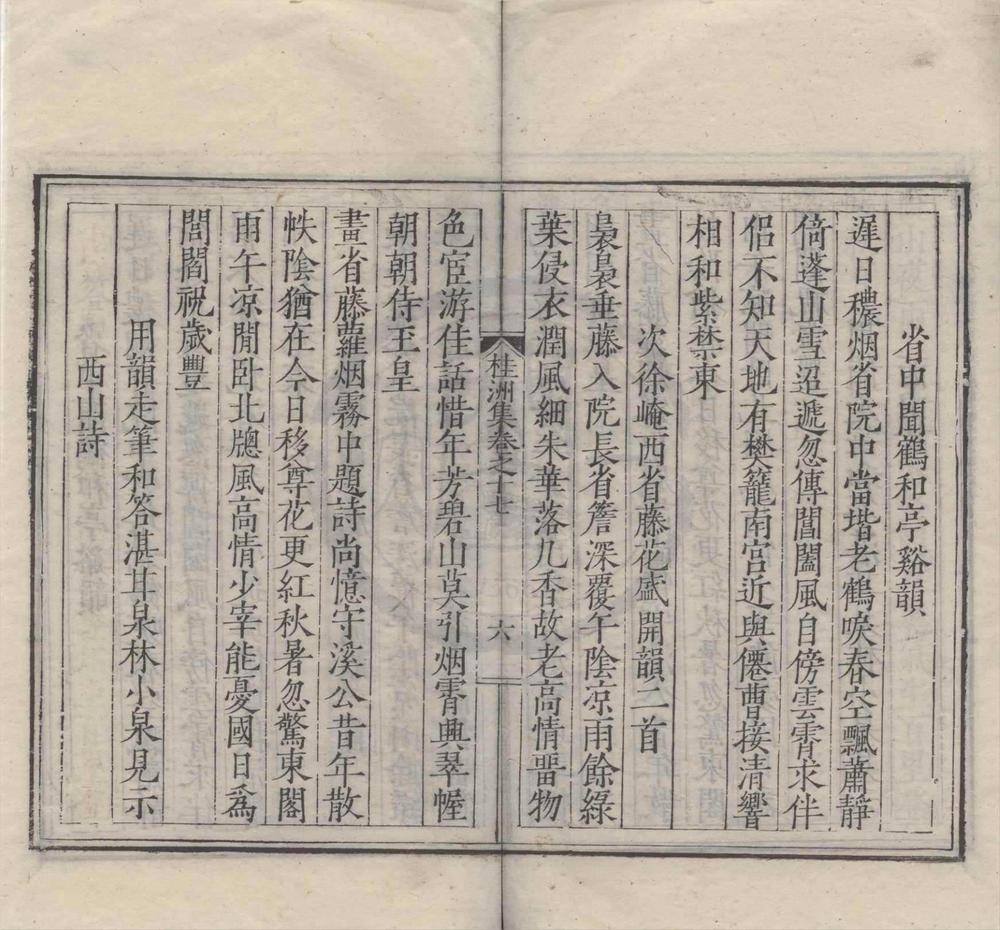 省中聞鶴和亭谿韻
遲日穠烟省院中當堦老鶴唳春空飄蕭靜
倚蓬山雪迢遞忽傳閶闔風自傍雲霄求伴
侶不知天地有樊籠南宮近與僊曹接清響
相和紫禁東
次徐崦西省藤花盛開韻二首
裊裊垂藤入院長省簷深覆午陰凉雨餘綠
葉侵衣潤風細朱華落几香故老高情畱物
桂洲集卷之十七
六
色宦游佳話惜年芳碧山莫引烟霄興翠幄
朝朝侍玉皇
畫省藤蘿烟霧中題詩尚憶守溪公昔年散
帙陰猶在今日移尊花更紅秋暑忽驚東閣
雨午凉閒臥北牕風高情少宰能憂國日爲
閭閻祝歲豐
用韻走筆和答湛甘泉林小泉見示
西山詩